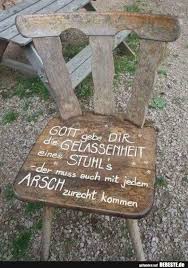 GOTT gebe DIR
die GELASSENHEIT
eines STUHL's
der muss auch mit jedem
ARSCH zurecht kommen
gefunden auf DEBESTE.de